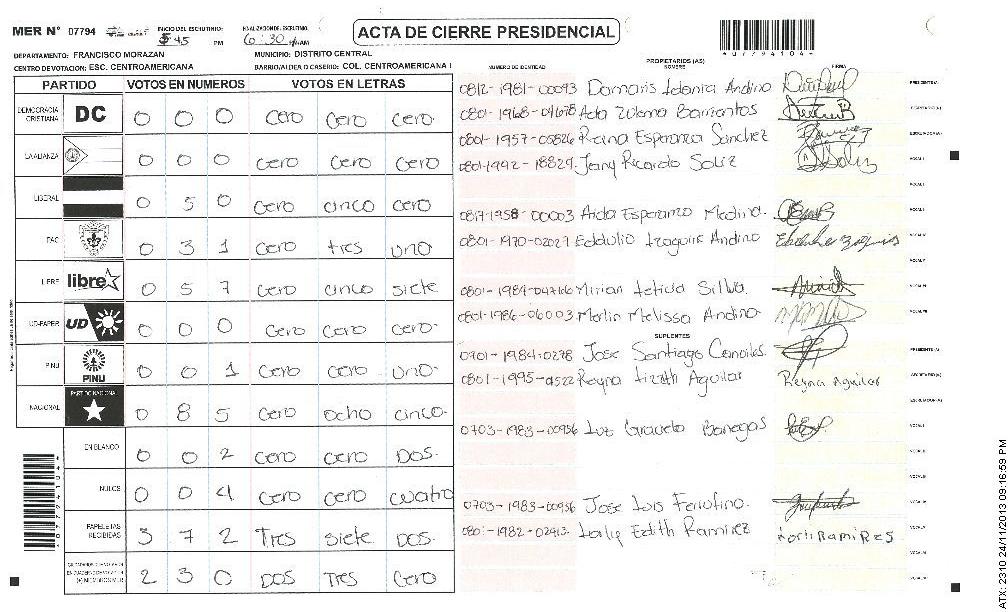 MER N° 07794 INICIO DEL ESCRUTINIO: 5:45 PM FINALIZACION DE ESCRUTINIO: 6:30 AM
ACTA DE CIERRE PRESIDENCIAL
*07794104*
DEPARTAMENTO: FRANCISCO MORAZAN MUNICIPIO: DISTRITO CENTRAL
CENTRO DE VOTACION: ESC. CENTROAMERICANA BARRIO/ALDEA O CASERIO: COL. CENTROAMERICANA I
PARTIDO VOTOS EN NUMEROS VOTOS EN LETRAS
DEMOCRACIA CRISTIANA DC 0 0 0 cero cero cero
LA ALIANZA 0 0 0 cero cero cero
LIBERAL 0 5 0 cero cinco cero
PAC 0 3 1 cero tres uno
LIBRE libre 0 5 7 cero cinco siete
UD-FAPER UD 0 0 0 cero cero cero
PINU PINU 0 0 1 cero cero uno
NACIONAL PARTIDO NACIONAL 0 8 5 cero ocho cinco
EN BLANCO 0 0 2 cero cero DOS
NULOS 0 0 4 cero cero cuatro
PAPELETAS RECIBIDAS 3 7 2 Tres siete DOS
(+) MIEMBROS MER 2 3 0 DOS Tres Cero
NUMERO DE IDENTIDAD PROPIETARIOS (AS) NOMBRE FIRMA
0812-1981-00093 Damaris Idania Andino PRESIDENTE/A
0801-1968-01678 Ada Zulema Barrientos SECRETARIO(A)
0801-1957-05826 Reina Esperanza Sanchez ESCRUTADOR(A)
0801-1992-18829 Jeny Ricardo Soliz VOCAL I
0817-1958-00003 Aida Esperanza Medina
0801-1970-02027 Eddulio Izaguirre Andino
0801-1984-04766 Mirian Leticia Silva
0801-1986-06003 Merlin Melissa Andino
SUPLENTES
0701-1984-0278 Jose Santiago Canales PRESIDENTE(A)
0801-1995-0522 Reyna Lizeth Aguilar Reyna Aguilar SECRETARIO(A)
ESCRUTADOR(A)
0703-1983-00956 Luz Graciela Banegas
0703-1983-00956 Jose Luis Ferrufino
0801-1982-02913 Edith Ramirez
ATX: 2310 24/11/2013 09:16:59 PM